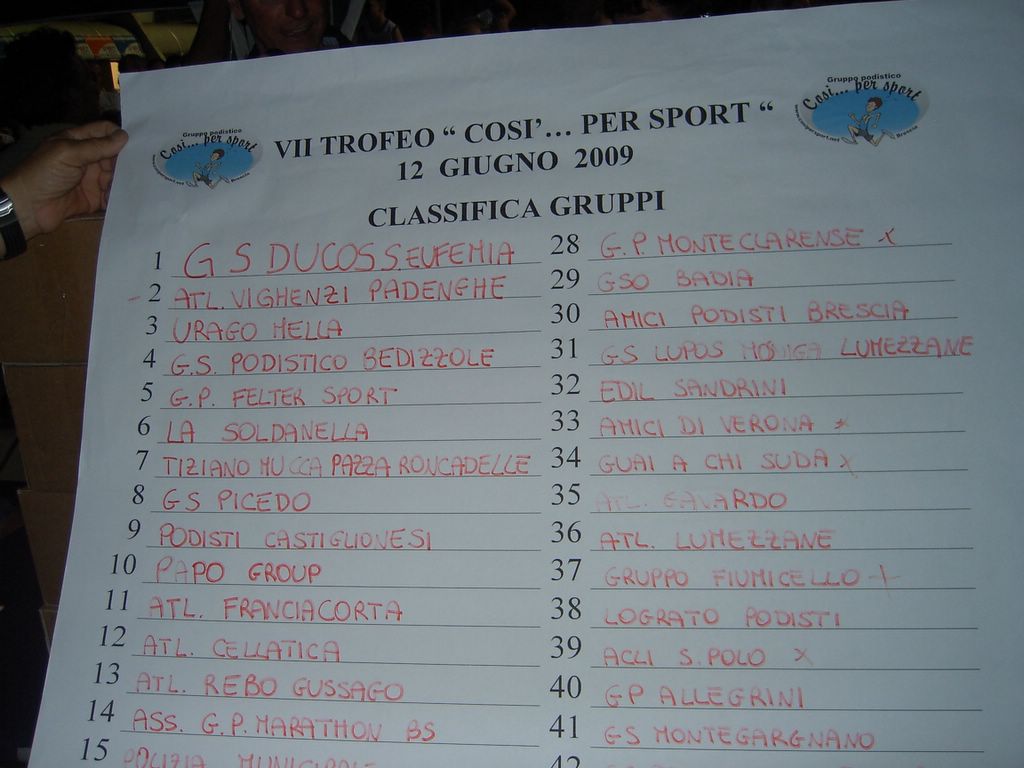 VII TROFEO “ COSI’… PER SPORT “
12 GIUGNO 2009
CLASSIFICA GRUPPI
Gruppo podistico
Così... per sport
Brescia
Gruppo podistico
Così... per sport
Brescia
1 G S DUCOS S.EUFEMIA
- 2 ATL. VIGHENZI PADENGHE
3 URAGO MELLA
4 G.S. PODISTICO BEDIZZOLE
5 G.P. FELTER SPORT
6 LA SOLDANELLA
7 TIZIANO MUCCA PAZZA RONCADELLE
8 GS PICEDO
9 PODISTI CASTIGLIONESI
10 PAPO GROUP
11 ATL. FRANCIACORTA
12 ATL. CELLATICA
13 ATL. REBO GUSSAGO
14 ASS. G.P. MARATHON BS
15 POLIZIA MUNICIPALE
28 G.P. MONTECLARENSE x
29 GSO BADIA
30 AMICI PODISTI BRESCIA
31 GS LUPOS LUMEZZANE
32 EDIL SANDRINI
33 AMICI DI VERONA x
34 GUAI A CHI SUDA x
35 ATL. GAVARDO
36 ATL. LUMEZZANE
37 GRUPPO FIUMICELLO +
38 LOGRATO PODISTI
39 ACLI S. POLO x
40 GP ALLEGRINI
41 GS MONTEGARGNANO
42